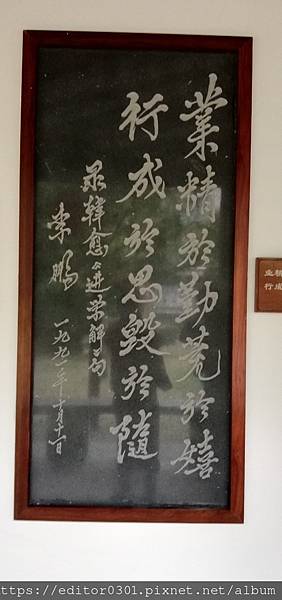 業精於勤荒於嬉
行成於思毀於隨
录韓愈進学解句
鵬
一九九一年十月十一日
业精
行成
https://editor0301.pixnet.net/album